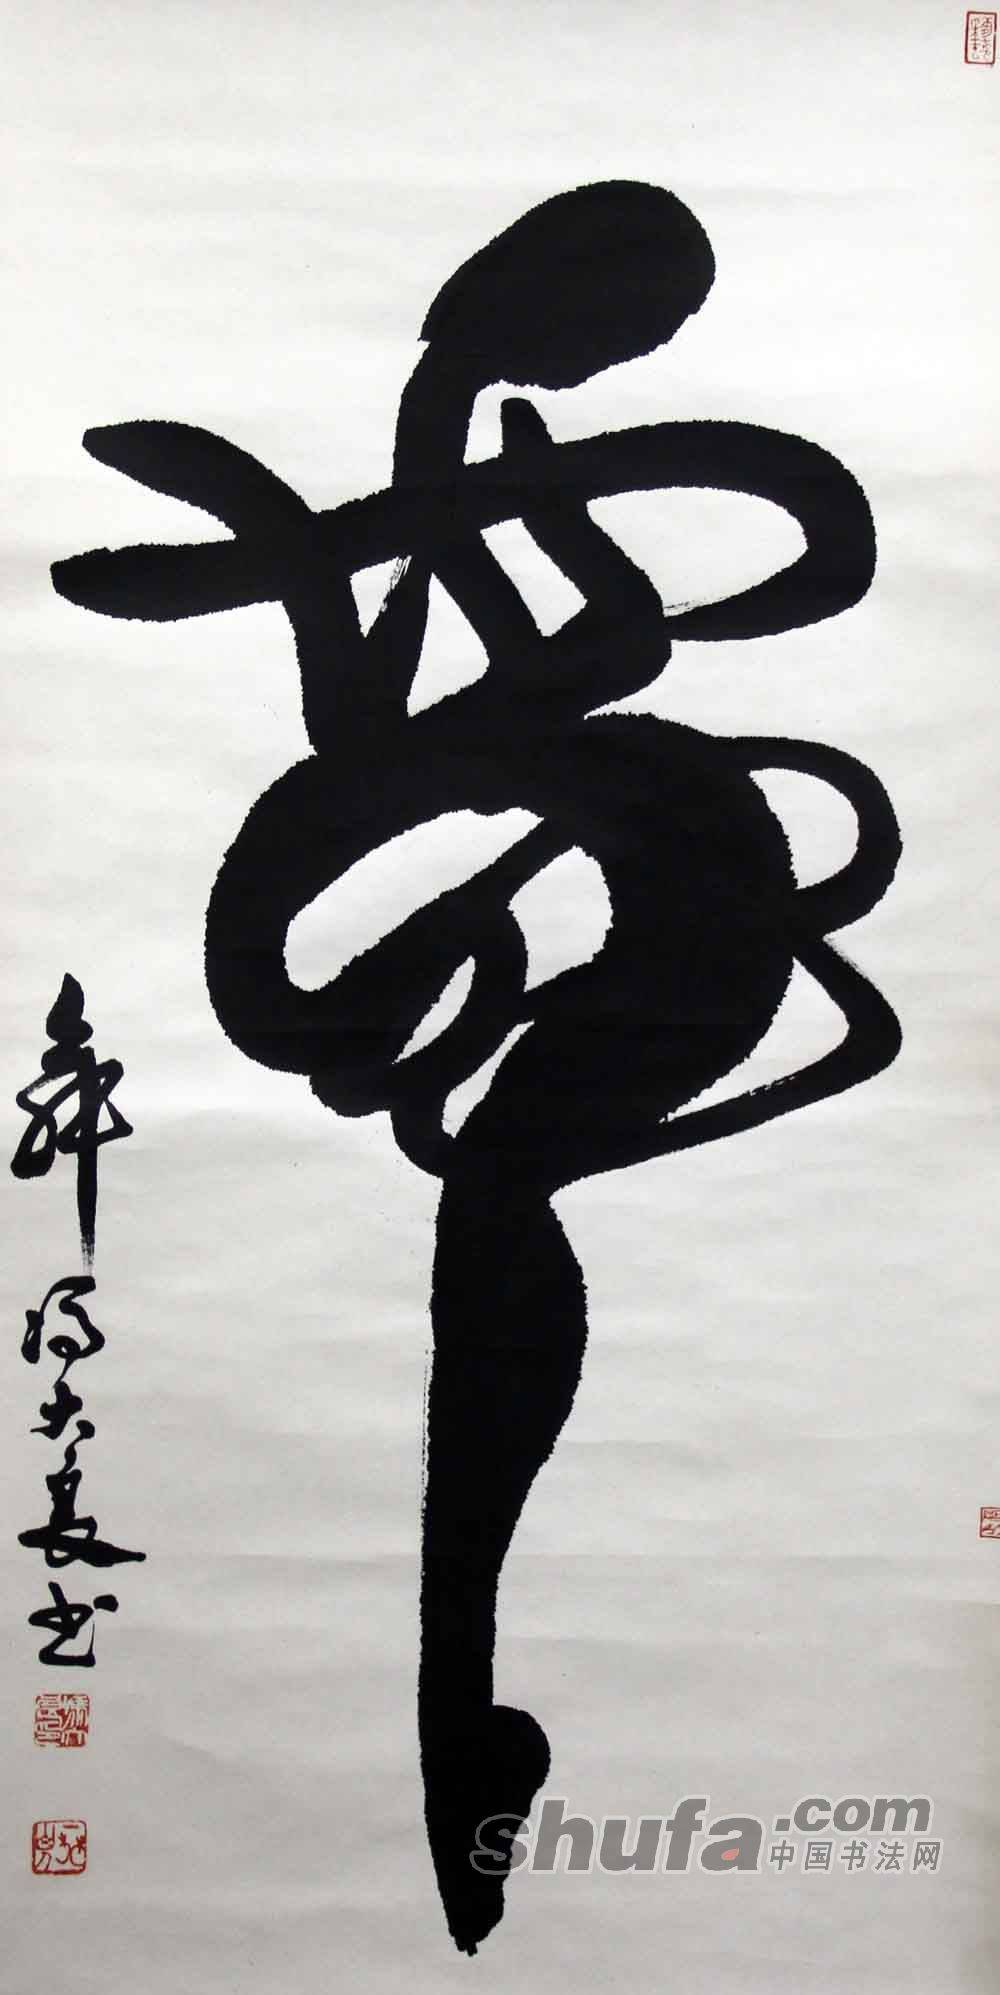 舞
舞 冯大良书
shufa.com
中国书法网